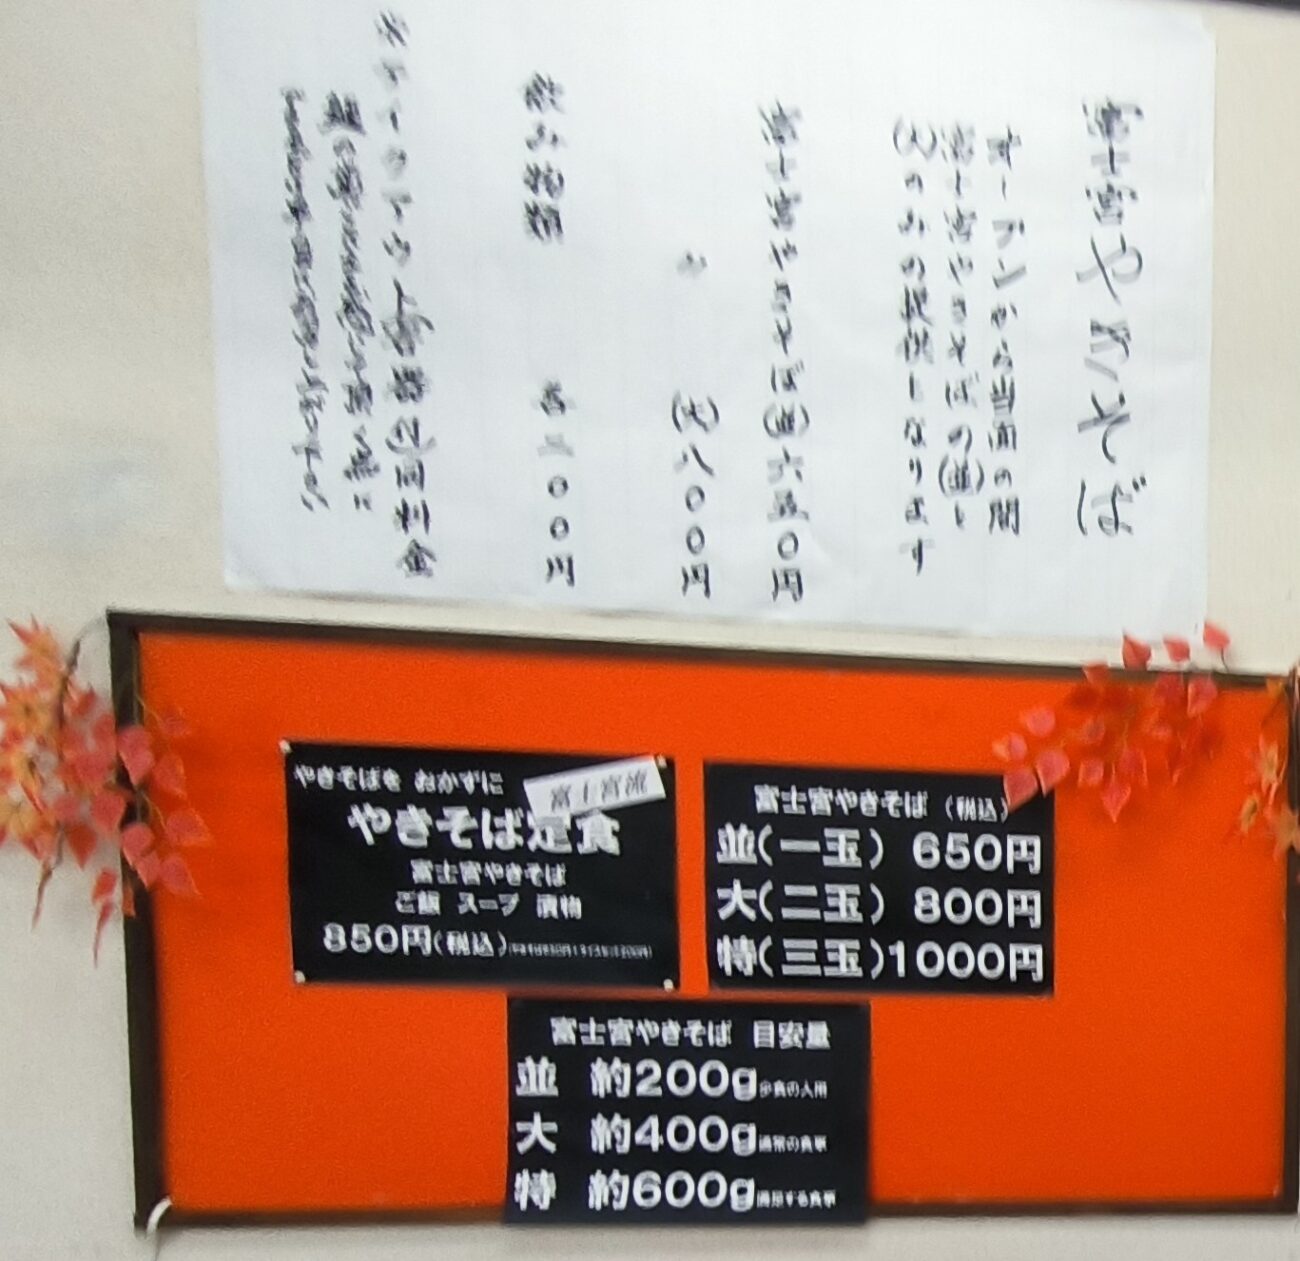 富士宮やきそば
オープンから当面の間
富士宮やきそばの(並)と
(大)のみの提供となります
富士宮やきそば(並)六五〇円
〃 (大)八〇〇円
飲み物類 各二〇〇円
やきそばを おかずに
富士宮流
やきそば定食
富士宮やきそば
ご飯 スープ 漬物
850円(税込)
富士宮やきそば (税込)
並(一玉) 650円
大(二玉) 800円
特(三玉)1000円
富士宮やきそば 目安量
並 約200g 少食の人用
大 約400g 通常の食事
特 約600g 満足する食事